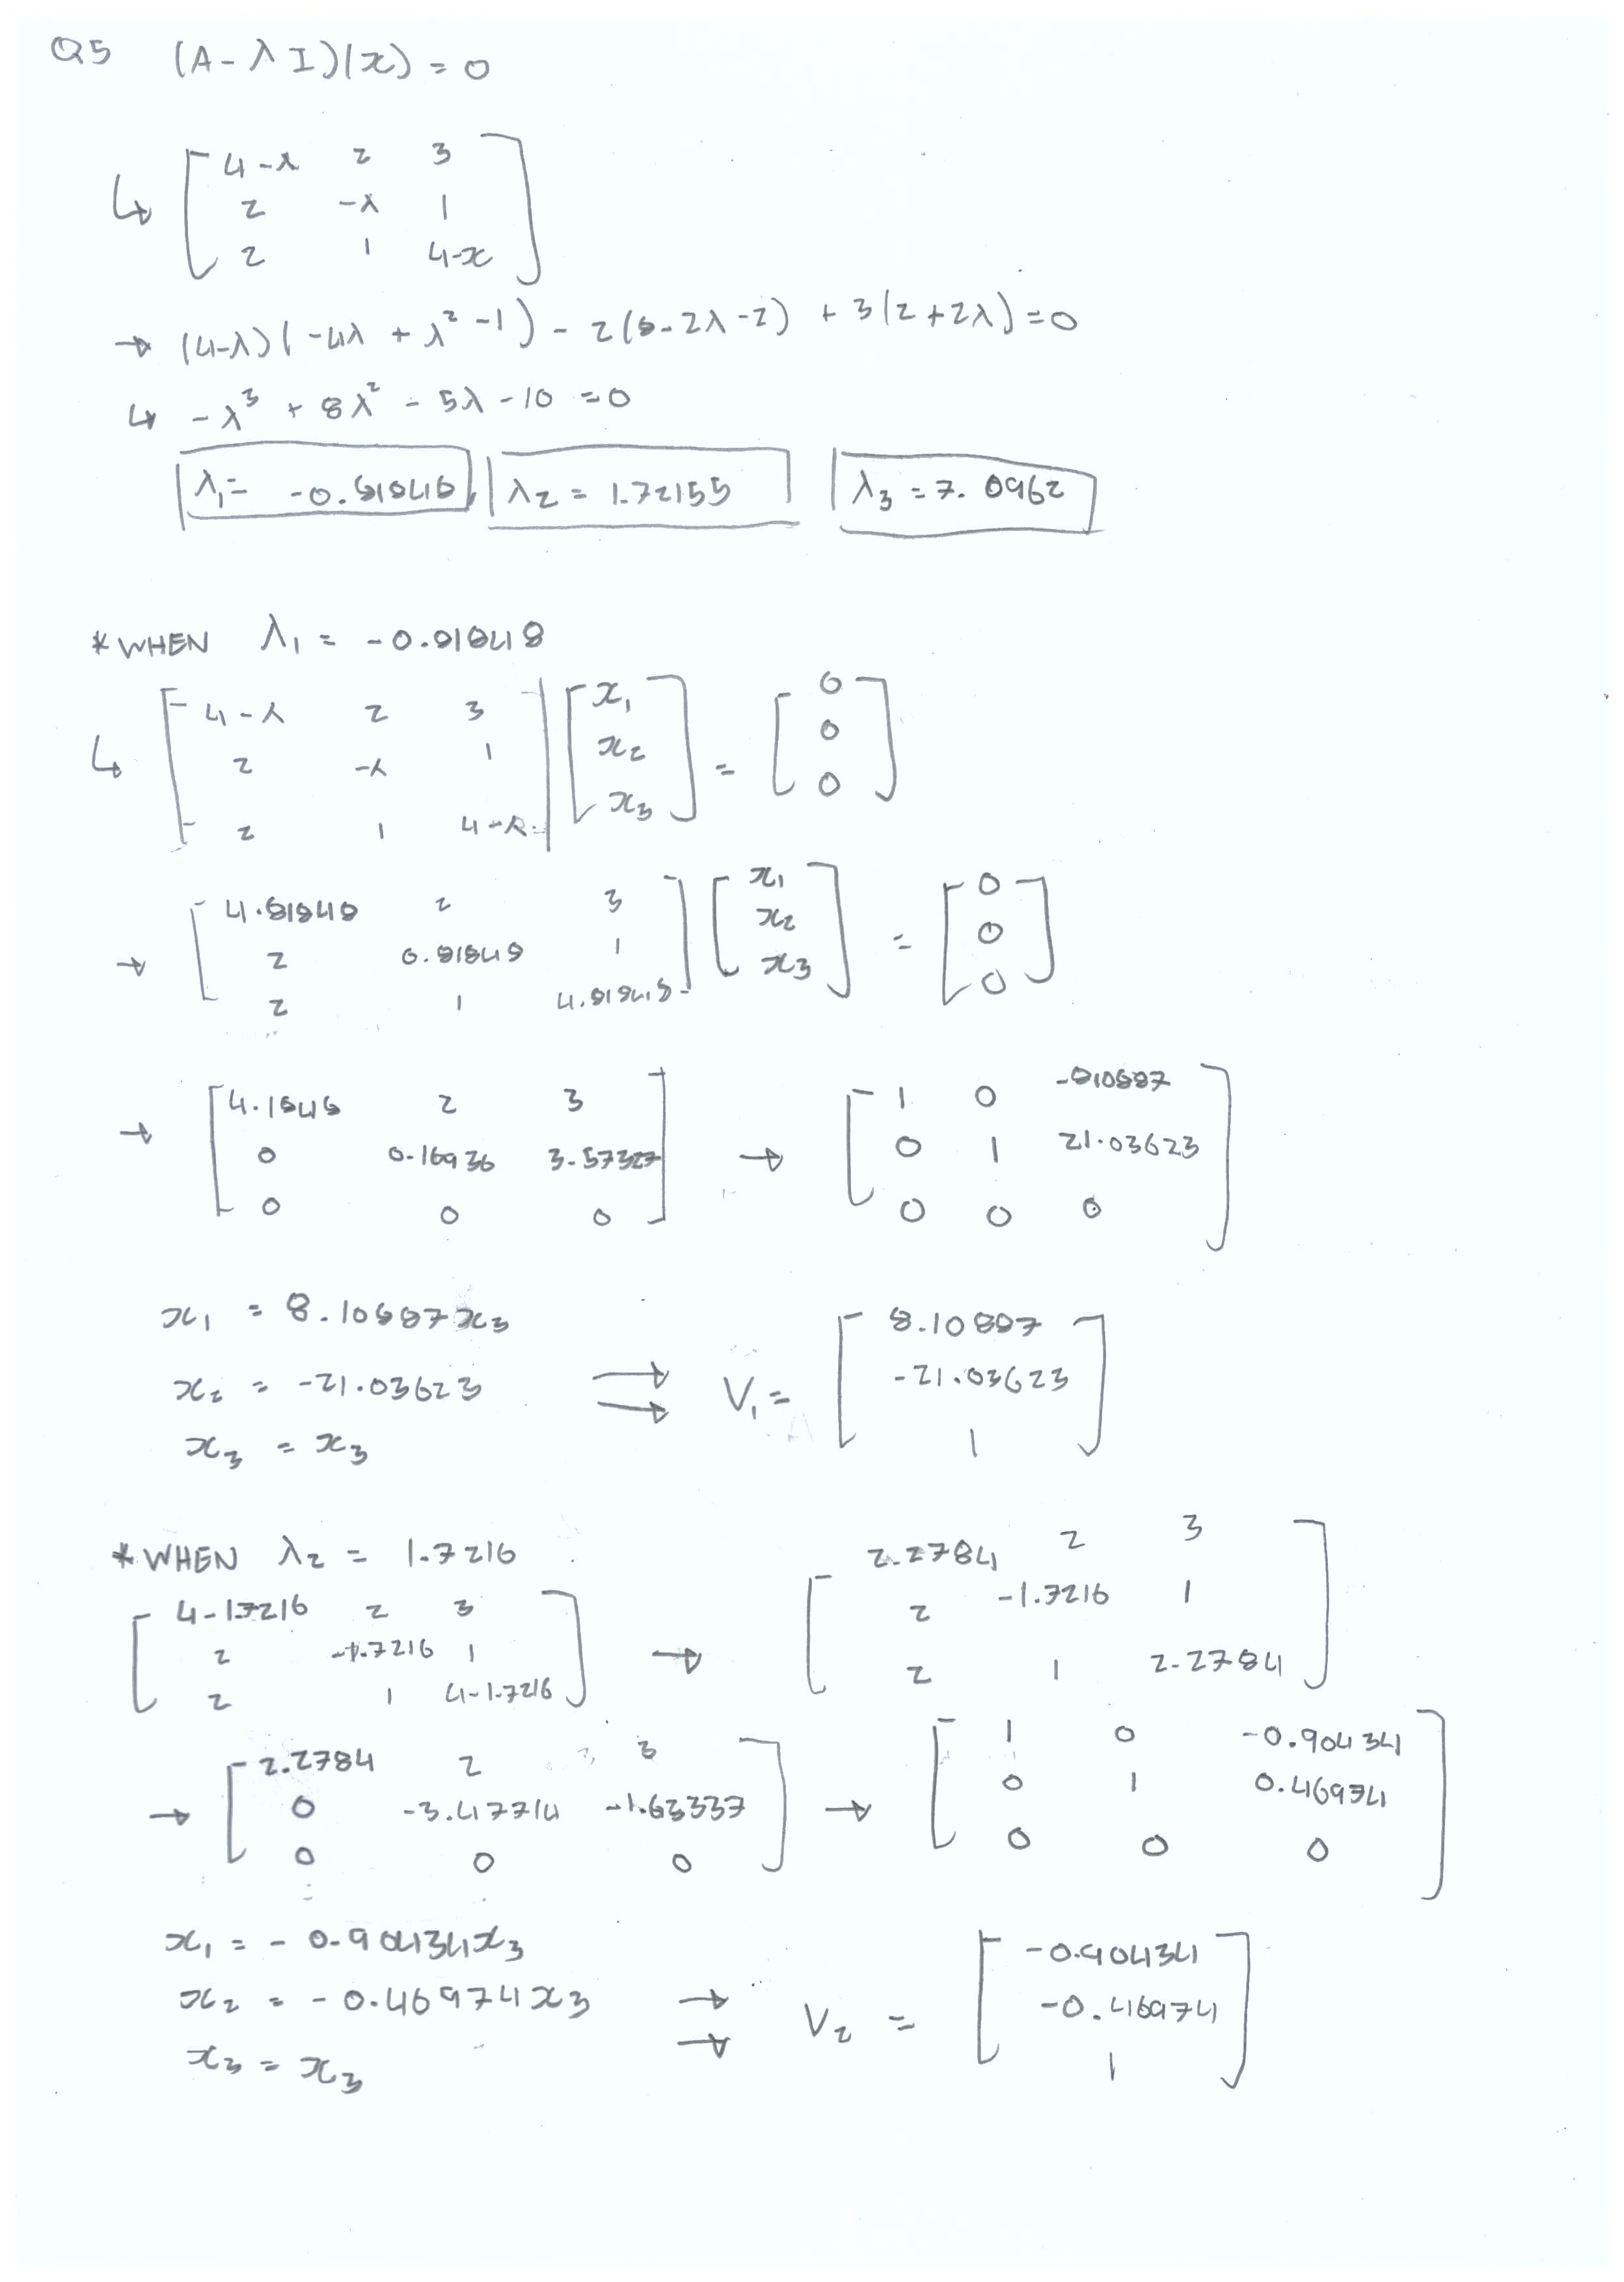 Q5 (A - λI)(x) = 0
↳ [ 4-λ 2 3
2 -λ 1
2 1 4-x ]
→ (4-λ)(-4λ + λ² - 1) - 2(8-2λ-2) + 3(2+2λ) = 0
↳ -λ³ + 8λ² - 5λ - 10 = 0
λ₂ = 1.72155 λ₃ = 7.0962
* WHEN λ₁ = -0.81848
↳ [ 4-λ 2 3
2 -λ 1
2 1 4-λ ] [ x₁ x₂ x₃ ] = [ 0 0 0 ]
→ [ 4.81848 2 3
2 0.81848 1
2 1 4.81848 ] [ x₁ x₂ x₃ ] = [ 0 0 0 ]
→ [ 2 3
0 0.16936 3.57327
0 0 0 ] → [ 1 0
0 1 21.03623
0 0 0 ]
x₁ = 8.10887x₃
x₂ = -21.03623
x₃ = x₃
⇒ V₁ = [ 8.10887
-21.03623
1 ]
* WHEN λ₂ = 1.7216
[ 4-1.7216 2 3
2 -1.7216 1
2 1 4-1.7216 ] → [ 2.2784 2 3
2 -1.7216 1
2 1 2.2784 ]
→ [ 2.2784 2 3
0 -3.47714 -1.63337
0 0 0 ] → [ 1 0 -0.90434
0 1 0.46974
0 0 0 ]
x₁ = -0.90434x₃
x₂ = -0.46974x₃
x₃ = x₃
⇒ V₂ = [ -0.90434
-0.46974
1 ]